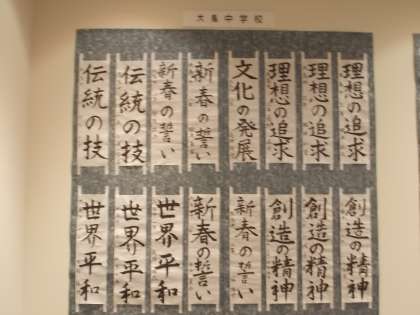 大亀中学校
理想の追求
理想の追求
理想の追求
文化の発展
新春の誓い
新春の誓い
伝統の技
伝統の技
創造の精神
創造の精神
創造の精神
新春の誓い
新春の誓い
世界平和
世界平和
世界平和